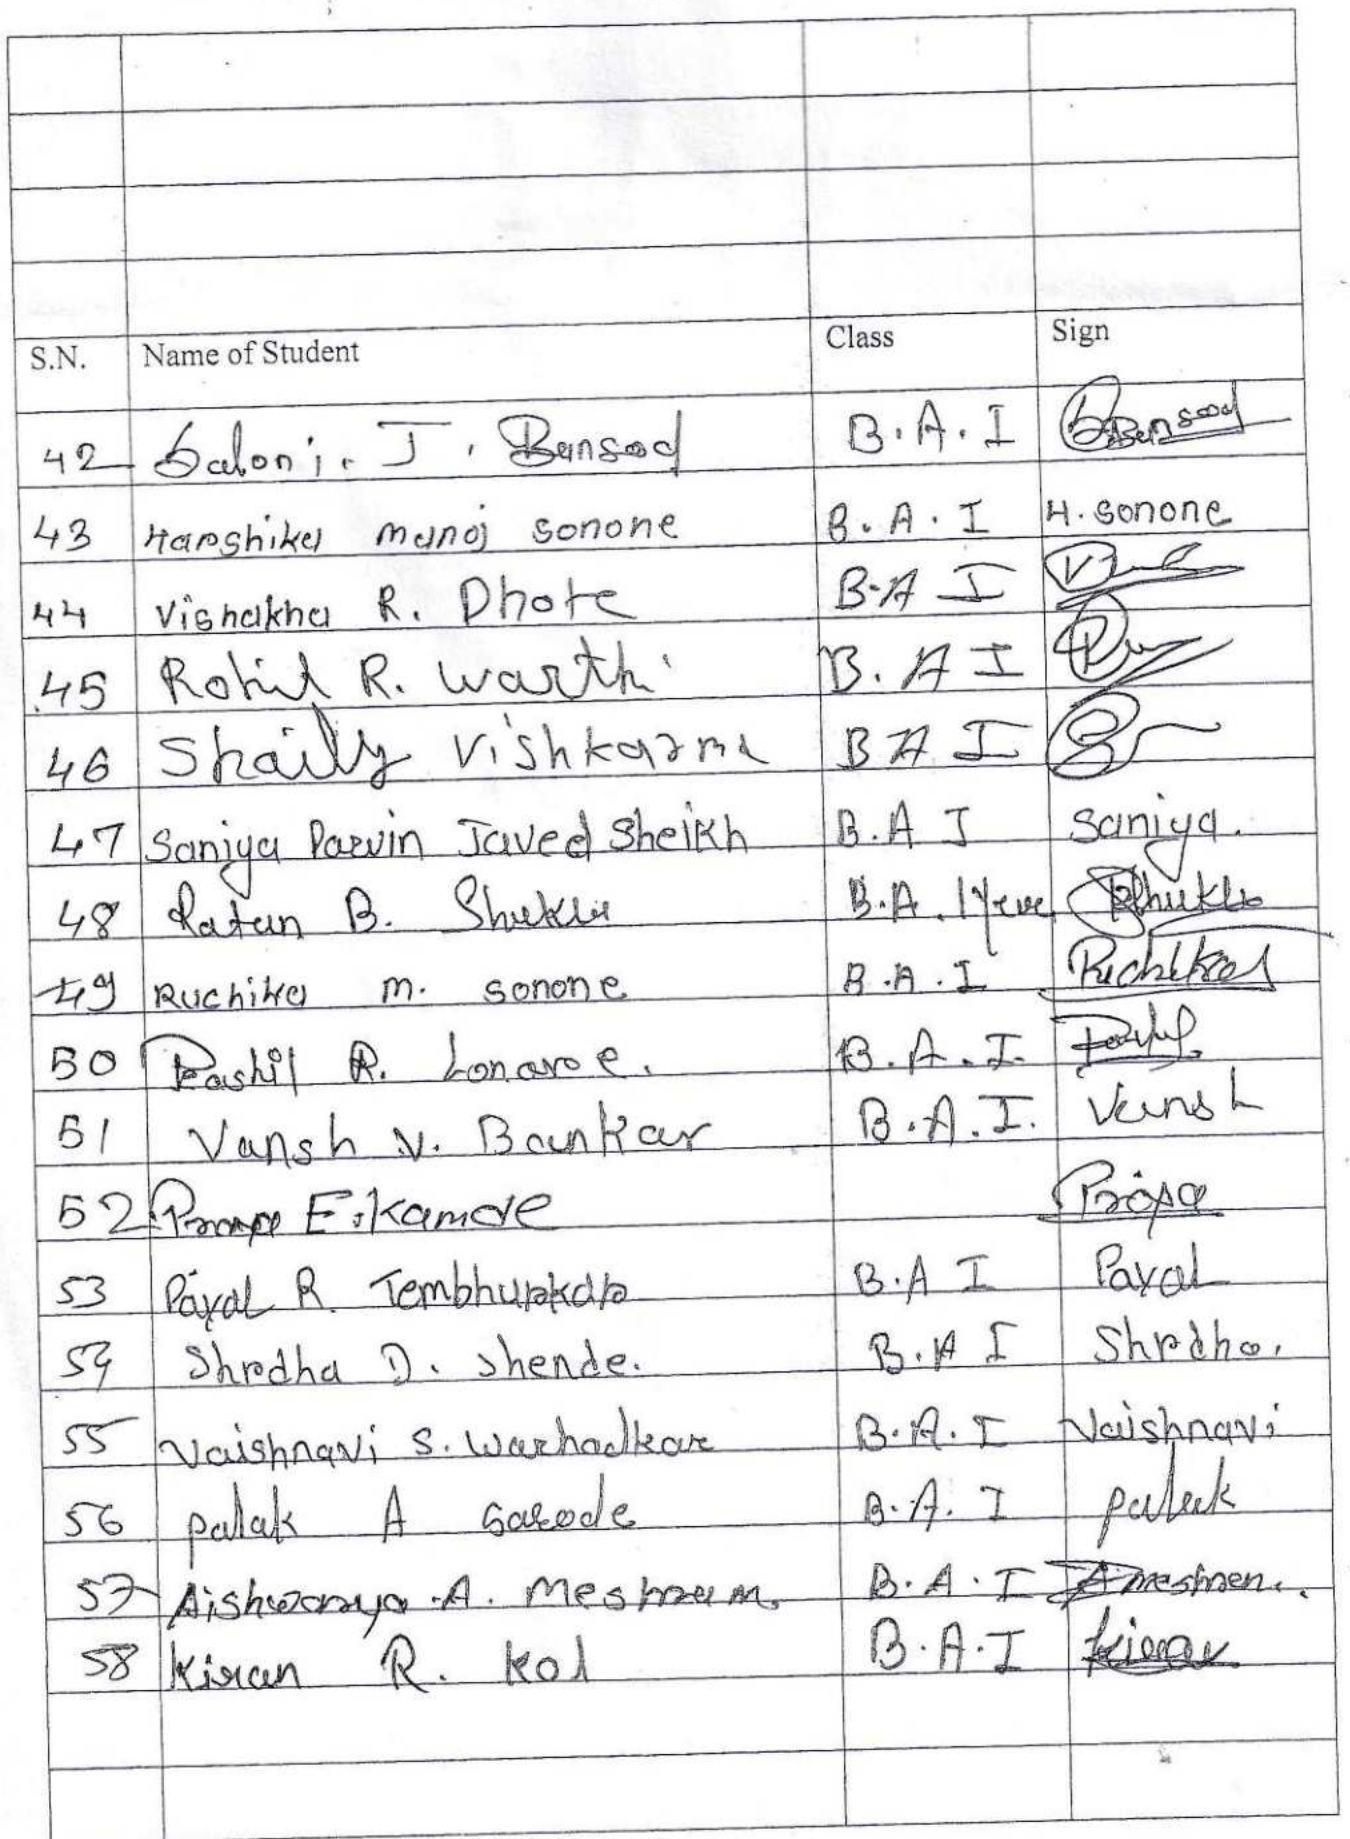 S.N. Name of Student Class Sign
42 Saloni. J. Bansod B.A.I Bansod
43 Harshika manoj sonone B.A.I H. sonone
44 Vishakha R. Dhote B.A I
45 Rohit R. Warthi B.A I
46 Shaily Vishkarma B A I
47 Saniya Parvin Javed Sheikh B.A I Saniya.
48 Ratan B. Shukla B.A. 1 Shukla
49 Ruchika m. sonone B.A.I Ruchika
50 R. Lonare. B.A.I.
51 Vansh V. Bankar B.A.I. Vansh
52 E. Kamde
53 Payal R. Tembhurkar B.A I Payal
54 Shrdha D. Shende. B.A I Shrdha.
55 Vaishnavi S. Warhadkar B.A.I Vaishnavi
56 palak A Sarode B.A.I palak
57 Aishwarya A. Meshram B.A.I
58 Kiran R. Kol B.A.I Kiran